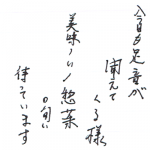 今日も足音が
聞えて
くる様
美味しい惣菜
の匂い
待っています